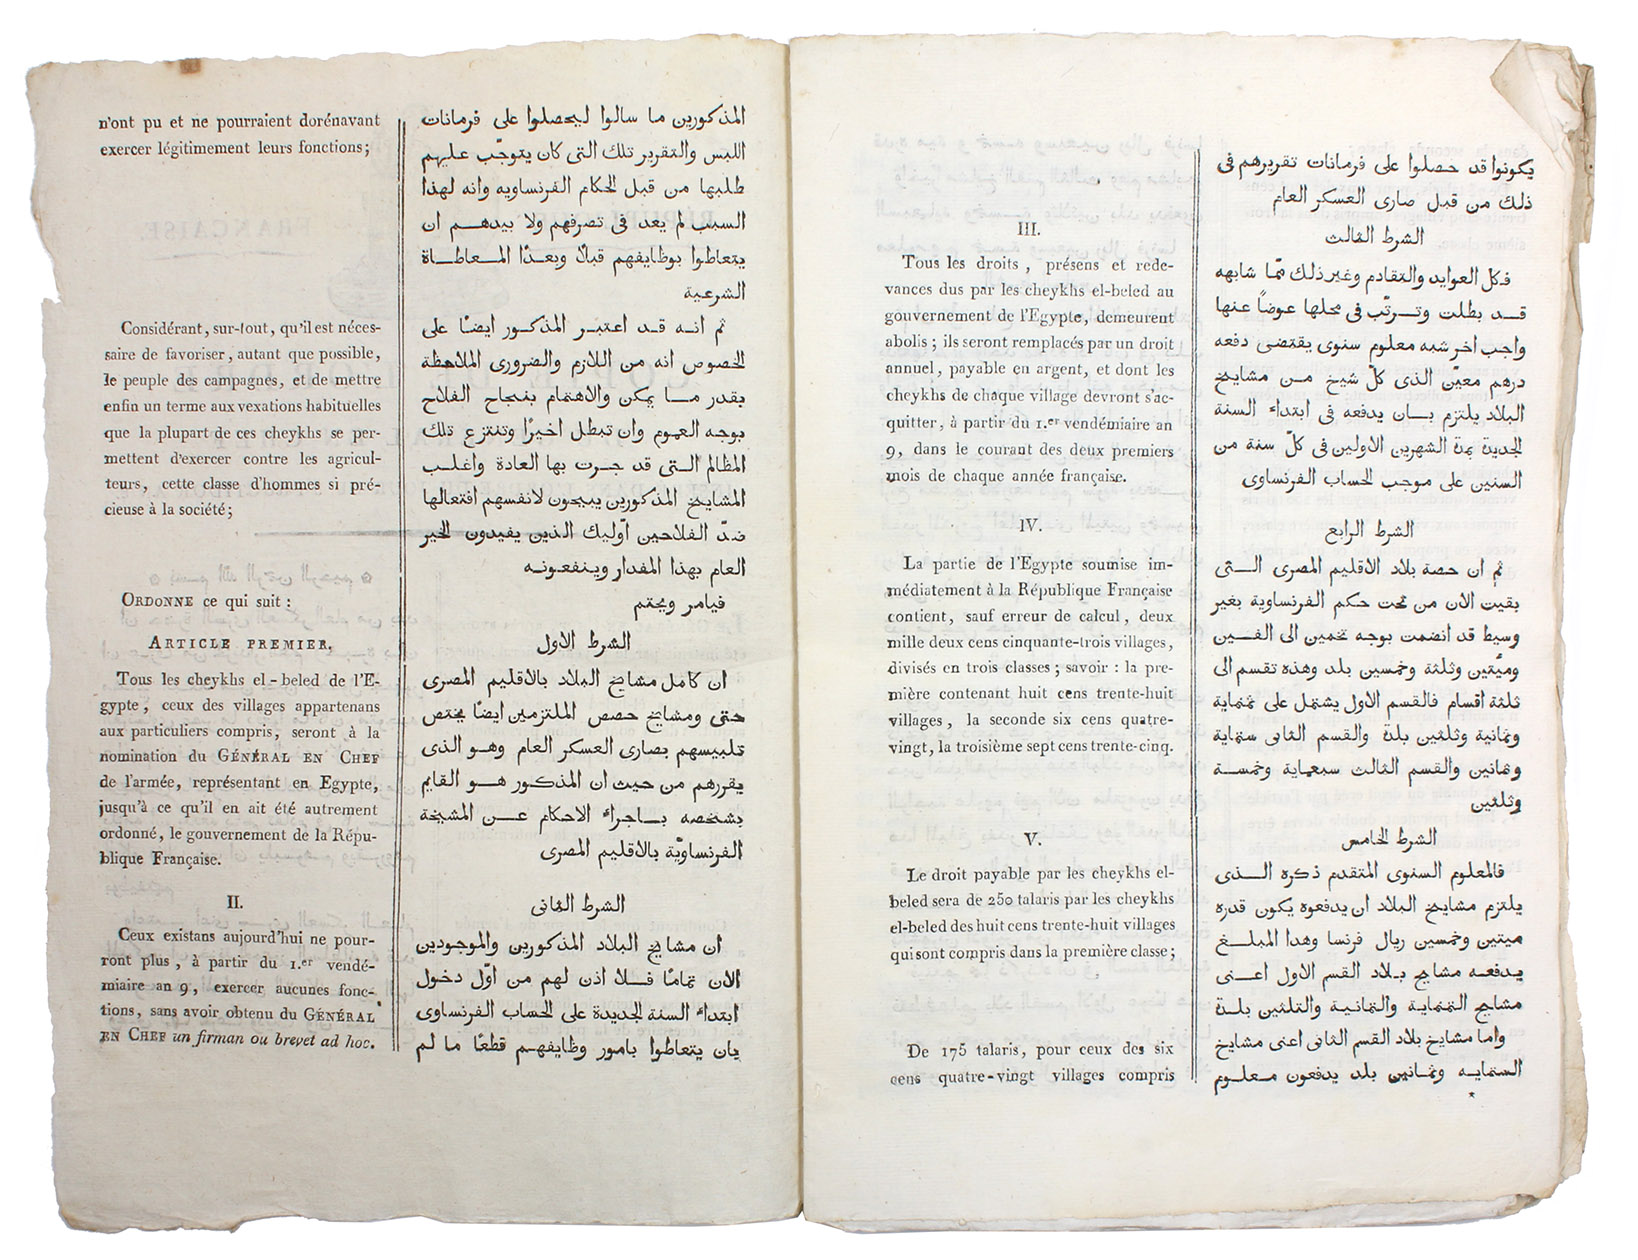 n'ont pu et ne pourraient dorénavant
exercer légitimement leurs fonctions;
Considérant, sur-tout, qu'il est néces-
saire de favoriser, autant que possible,
le peuple des campagnes, et de mettre
enfin un terme aux vexations habituelles
que la plupart de ces cheykhs se per-
mettent d'exercer contre les agricul-
teurs, cette classe d'hommes si pré-
cieuse à la société;
ORDONNE ce qui suit:
ARTICLE PREMIER.
Tous les cheykhs el-beled de l'E-
gypte, ceux des villages appartenans
aux particuliers compris, seront à la
nomination du GÉNÉRAL EN CHEF
de l'armée, représentant en Egypte,
jusqu'à ce qu'il en ait été autrement
ordonné, le gouvernement de la Répu-
blique Française.
II.
Ceux existans aujourd'hui ne pour-
ront plus, à partir du 1.er vendé-
miaire an 9, exercer aucunes fonc-
tions, sans avoir obtenu du GÉNÉRAL
EN CHEF un firman ou brevet ad hoc.
المذكورين ما سالوا ليحصلوا على فرمانات
اللبس والتقرير تلك التى كان يتوجّب عليهم
طلبها من قبل الحكام الفرنساويه وانه لهذا
السبب لم يعد فى تصرفهم ولا بيدهم ان
يتعاطوا بوظايفهم قبلاً وبعدًا المعاطاة
الشرعية
ثم انه قد اعتبر المذكور ايضًا على
الخصوص انه من اللازم والضرورى الملاحظة
بقدر ما يمكن والاهتمام بنجاح الفلاح
بوجه العموم وان تبطل اخيرًا وتنتزع تلك
المظالم التى قد جرت بها العادة واغلب
المشايخ المذكورين يبيحون لانفسهم افتعالها
ضدّ الفلاحين أوليك الذين يفيدون الخير
العام بهذا المقدار وينفعونه
فيامر ويحتم
الشرط الاول
ان كامل مشايخ البلاد بالاقليم المصرى
حتى ومشايخ حصص الملتزمين ايضًا يختص
تلبيسهم بصارى العسكر العام وهو الذى
يقررهم من حيث ان المذكور هو القايم
بشخصه باجراء الاحكام عن المشيخة
الفرنساويّة بالاقليم المصرى
الشرط الثانى
ان مشايخ البلاد المذكورين والموجودين
الان تمامًا فلا اذن لهم من اوّل دخول
ابتداء السنة الجديدة على الحساب الفرنساوى
بان يتعاطوا بامور وظايفهم قطعًا ما لم
III.
Tous les droits, présens et rede-
vances dus par les cheykhs el-beled au
gouvernement de l'Egypte, demeurent
abolis; ils seront remplacés par un droit
annuel, payable en argent, et dont les
cheykhs de chaque village devront s'ac-
quitter, à partir du 1.er vendémiaire an
9, dans le courant des deux premiers
mois de chaque année française.
IV.
La partie de l'Egypte soumise im-
médiatement à la République Française
contient, sauf erreur de calcul, deux
mille deux cens cinquante-trois villages,
divisés en trois classes; savoir: la pre-
mière contenant huit cens trente-huit
villages, la seconde six cens quatre-
vingt, la troisième sept cens trente-cinq.
V.
Le droit payable par les cheykhs el-
beled sera de 250 talaris par les cheykhs
el-beled des huit cens trente-huit villages
qui sont compris dans la première classe;
De 175 talaris, pour ceux des six
cens quatre-vingt villages compris
يكونوا قد حصلوا على فرمانات تقريرهم فى
ذلك من قبل صارى العسكر العام
الشرط الثالث
فكل العوايد والتقادم وغير ذلك ممّا شابهه
قد بطلت وترتّب فى محلها عوضًا عنها
واجب اخر شبه معلوم سنوى يقتضى دفعه
درهم معيّن الذى كلّ شيخ من مشايخ
البلاد يلتزم بان يدفعه فى ابتداء السنة
الجديدة بمدة الشهرين الاولين فى كلّ سنة من
السنين على موجب الحساب الفرنساوى
الشرط الرابع
ثم ان حصة بلاد الاقليم المصرى التى
بقيت الان من تحت حكم الفرنساوية بغير
وسيط قد انضمت بوجه تخمين الى الفين
وميّتين وثلثة وخمسين بلد وهذه تقسم الى
ثلثة اقسام فالقسم الاول يشتمل على ثمماية
وثمانية وثلثين بلدة والقسم الثانى ستماية
وثمانين والقسم الثالث سبعماية وخمسة
وثلثين
الشرط الخامس
فالمعلوم السنوى المتقدم ذكره الذى
يلتزم مشايخ البلاد ان يدفعوه يكون قدره
ميتين وخمسين ريال فرنسا وهدا المبلغ
يدفعه مشايخ بلاد القسم الاول اعنى
مشايخ الثمماية والثمانية والثلثين بلدة
واما مشايخ بلاد القسم الثانى اعنى مشايخ
الستمايه وثمانين بلد يدفعون معلوم
*